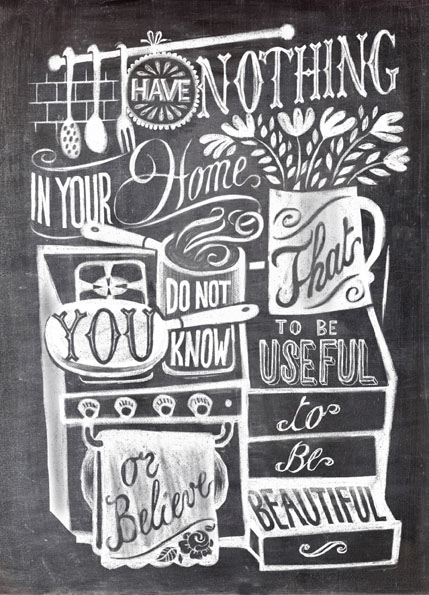 HAVE NOTHING
IN YOUR Home
That
YOU
DO NOT
KNOW
TO BE
USEFUL
or
Believe
to
Be
BEAUTIFUL